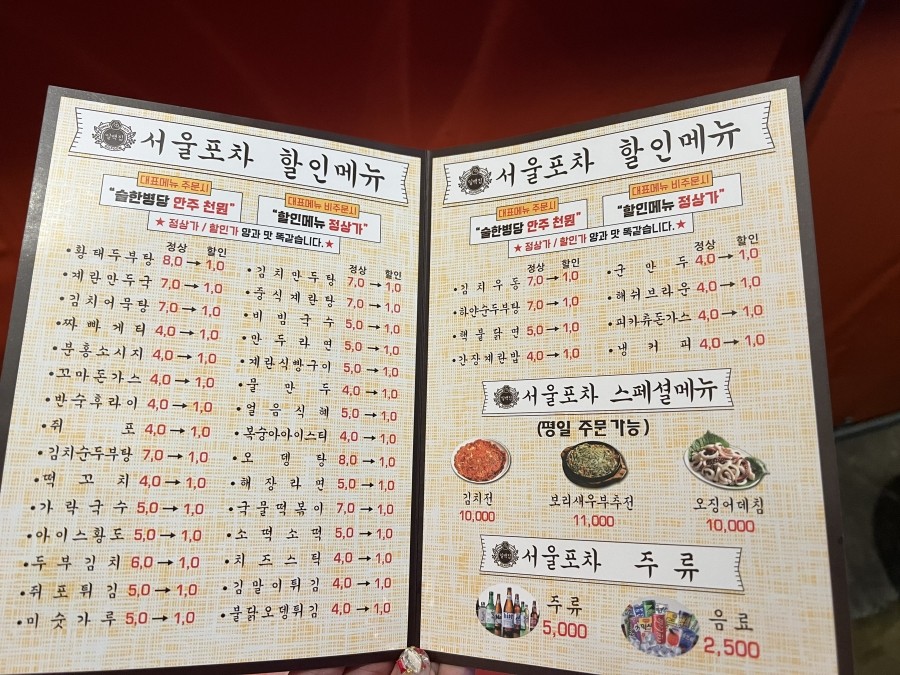 서울포차 할인메뉴
대표메뉴 주문시
"술한병당 안주 천원"
대표메뉴 비주문시
"할인메뉴 정상가"
★ 정상가 / 할인가 양과 맛 똑같습니다.★
정상 할인
•황태두부탕 8,0 → 1,0
•계란만두국 7,0 → 1,0
•김치어묵탕 7,0 → 1,0
•짜빠게티 4,0 → 1,0
•분홍소시지 4,0 → 1,0
•꼬마돈가스 4,0 → 1,0
•반숙후라이 4,0 → 1,0
•쥐포 4,0 → 1,0
•김치순두부탕 7,0 → 1,0
•떡꼬치 4,0 → 1,0
•가락국수 5,0 → 1,0
•아이스황도 5,0 → 1,0
•두부김치 6,0 → 1,0
•쥐포튀김 5,0 → 1,0
•미숫가루 5,0 → 1,0
정상 할인
•김치만두탕 7,0 → 1,0
•중식계란탕 7,0 → 1,0
•비빔국수 5,0 → 1,0
•만두라면 5,0 → 1,0
•계란식빵구이 5,0 → 1,0
•물만두 4,0 → 1,0
•얼음식혜 5,0 → 1,0
•복숭아아이스티 4,0 → 1,0
•오뎅탕 8,0 → 1,0
•해장라면 5,0 → 1,0
•국물떡볶이 7,0 → 1,0
•소떡소떡 5,0 → 1,0
•치즈스틱 4,0 → 1,0
•김말이튀김 4,0 → 1,0
•불닭오뎅튀김 4,0 → 1,0
서울포차 할인메뉴
대표메뉴 주문시
"술한병당 안주 천원"
대표메뉴 비주문시
"할인메뉴 정상가"
★ 정상가 / 할인가 양과 맛 똑같습니다.★
정상 할인
•김치우동 7,0 → 1,0
•하얀순두부탕 7,0 → 1,0
•핵불닭면 5,0 → 1,0
•간장계란밥 4,0 → 1,0
정상 할인
•군만두 4,0 → 1,0
•해쉬브라운 4,0 → 1,0
•피카츄돈가스 4,0 → 1,0
•냉커피 4,0 → 1,0
서울포차 스페셜메뉴
(평일 주문가능)
김치전
10,000
보리새우부추전
11,000
오징어데침
10,000
서울포차 주류
주류
5,000
음료
2,500